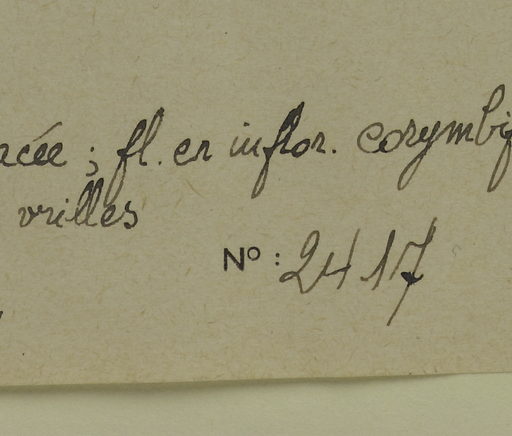 acée ; fl. en inflor. corymbif
vrilles
Nº : 2417